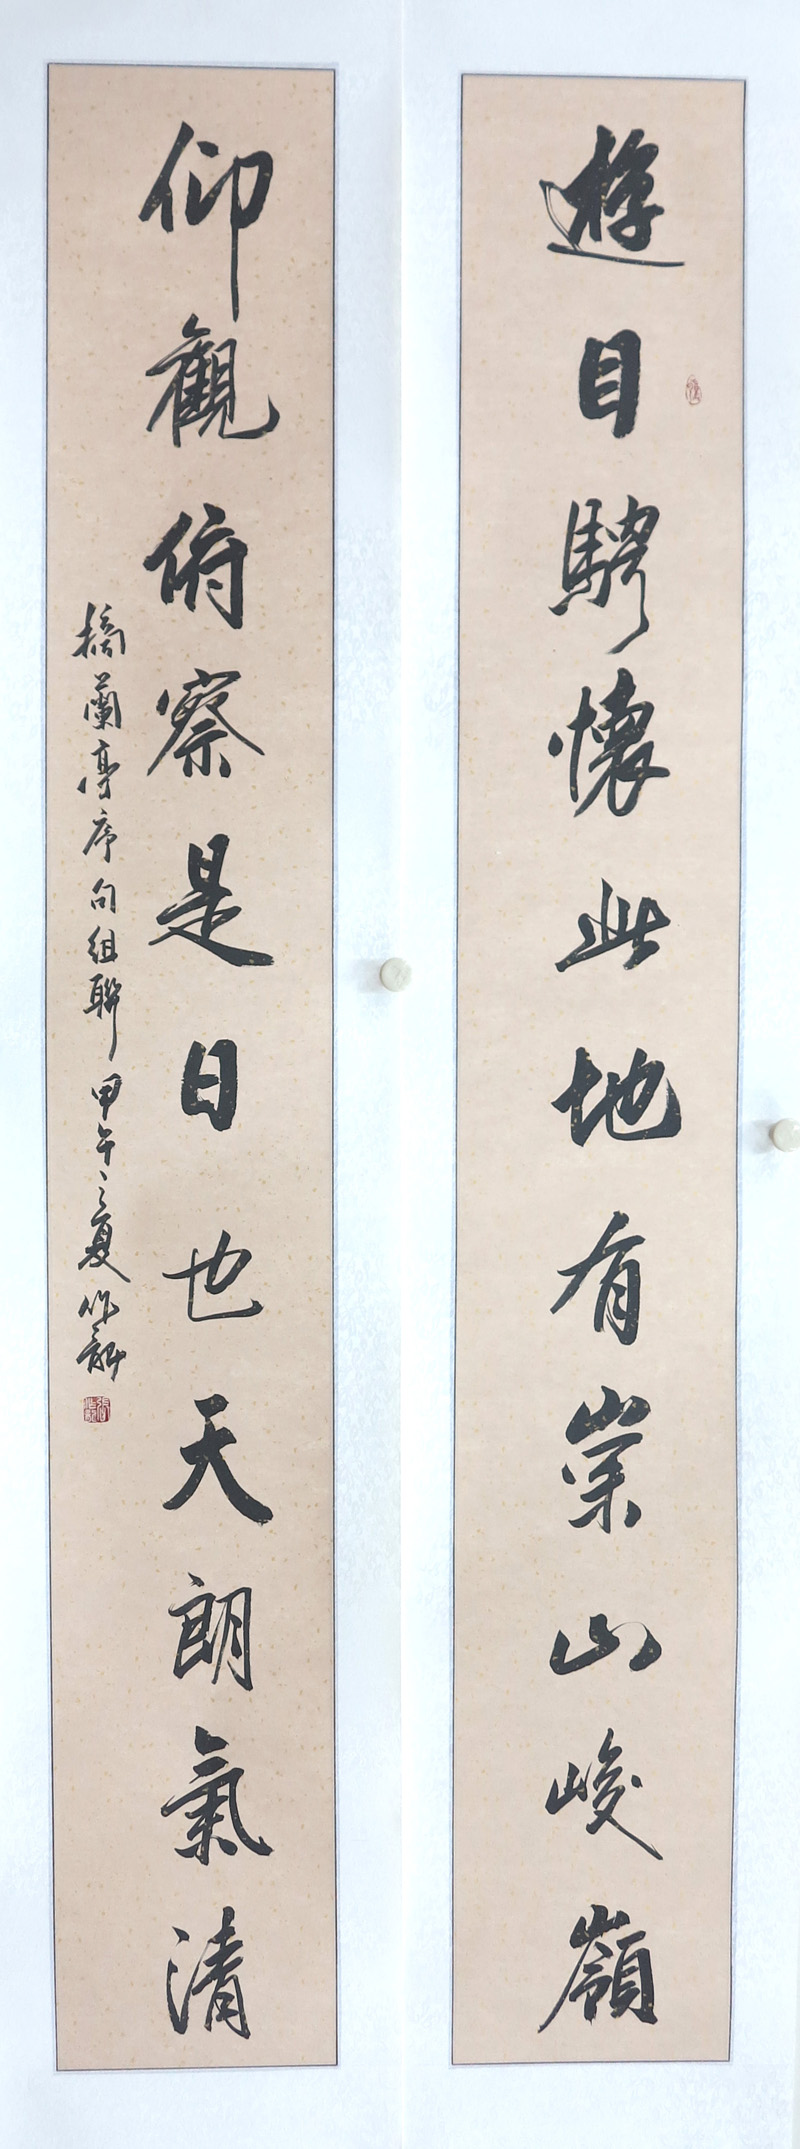 遊目騁懷此地有崇山峻嶺
仰觀俯察是日也天朗氣清
摘蘭亭序句組聯甲午之夏作龢